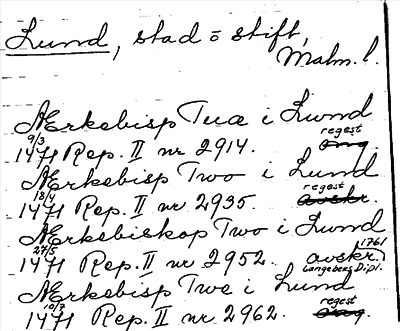 Lund, stad o stift,
Malm. l.
Ærkebisp Tuæ i Lund
9/3 1471 Rep. II nr 2914. regest
Ærkebisp Two i Lund
18/4 1471 Rep. II nr 2935. regest avskr.
Ærkebiskop Two i Lund
27/5 1471 Rep. II nr 2952. avskr. 1761
Langebeks Dipl.
Ærkebisp Twe i Lund
10/7 1471 Rep. II nr 2962. regest